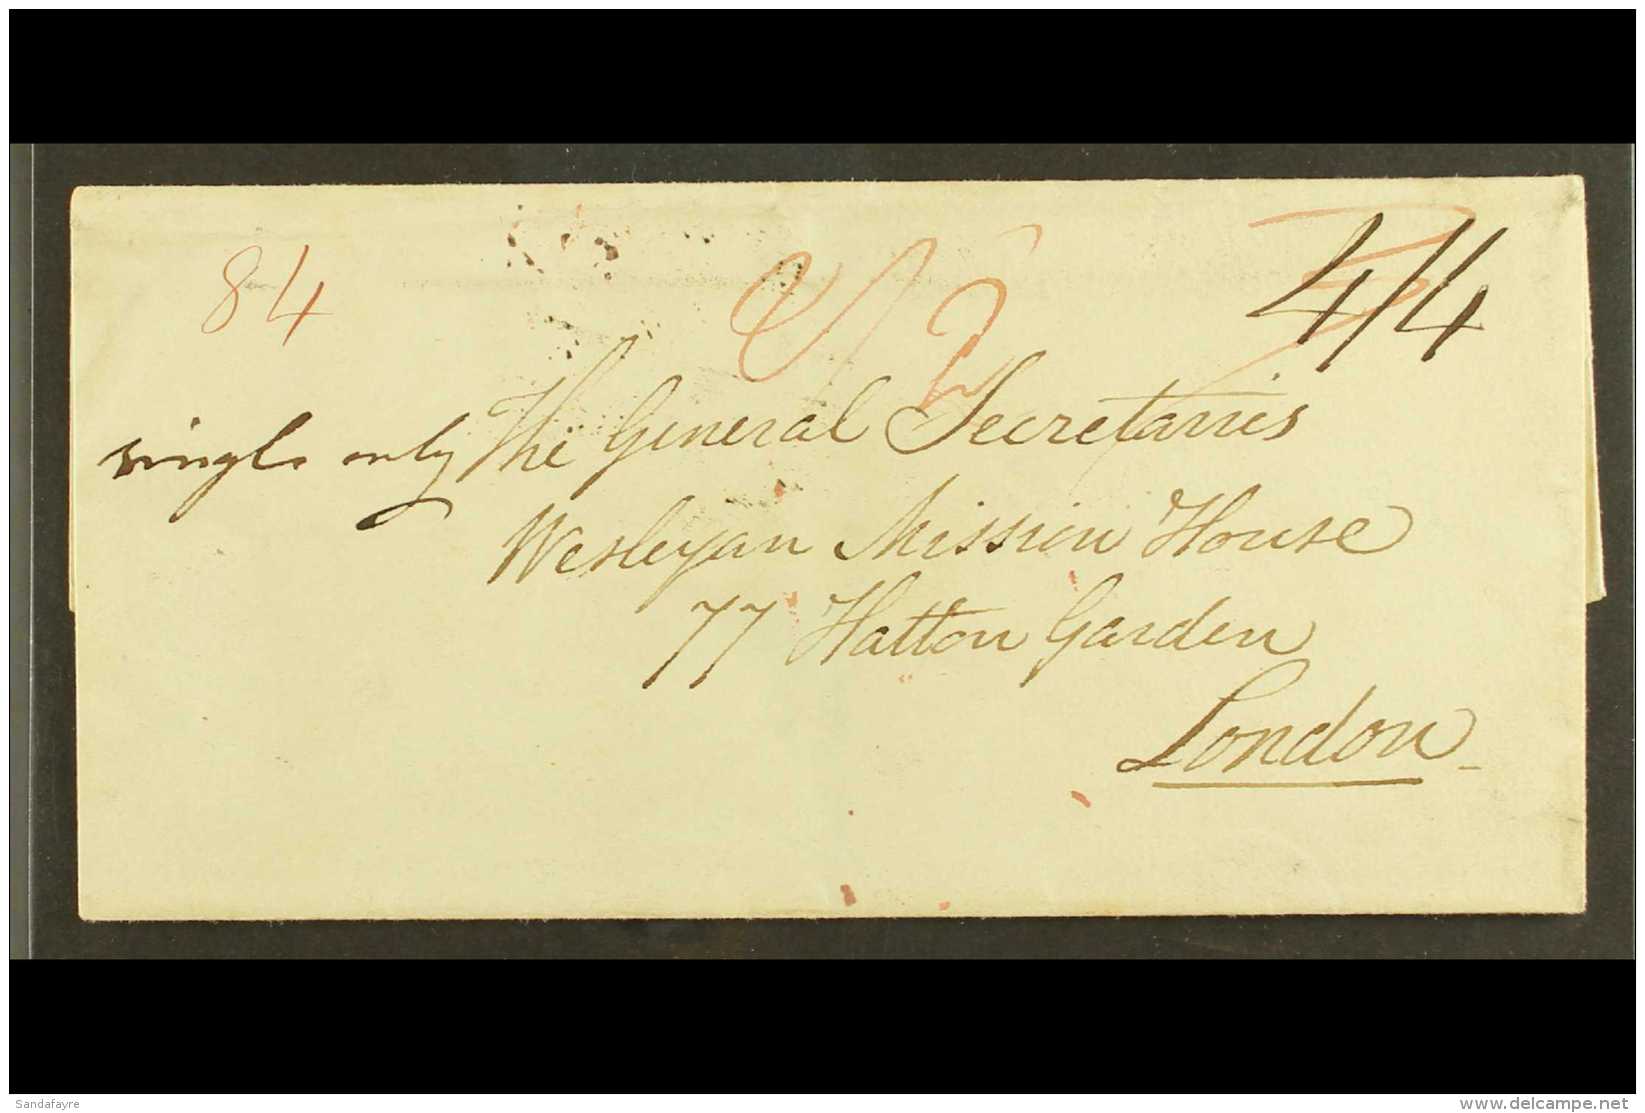 84
2/2
4/4
single only
The General Secretaries
Wesleyan Mission House
77 Hatton Garden
London
Sandafayre
www.delcampe.net